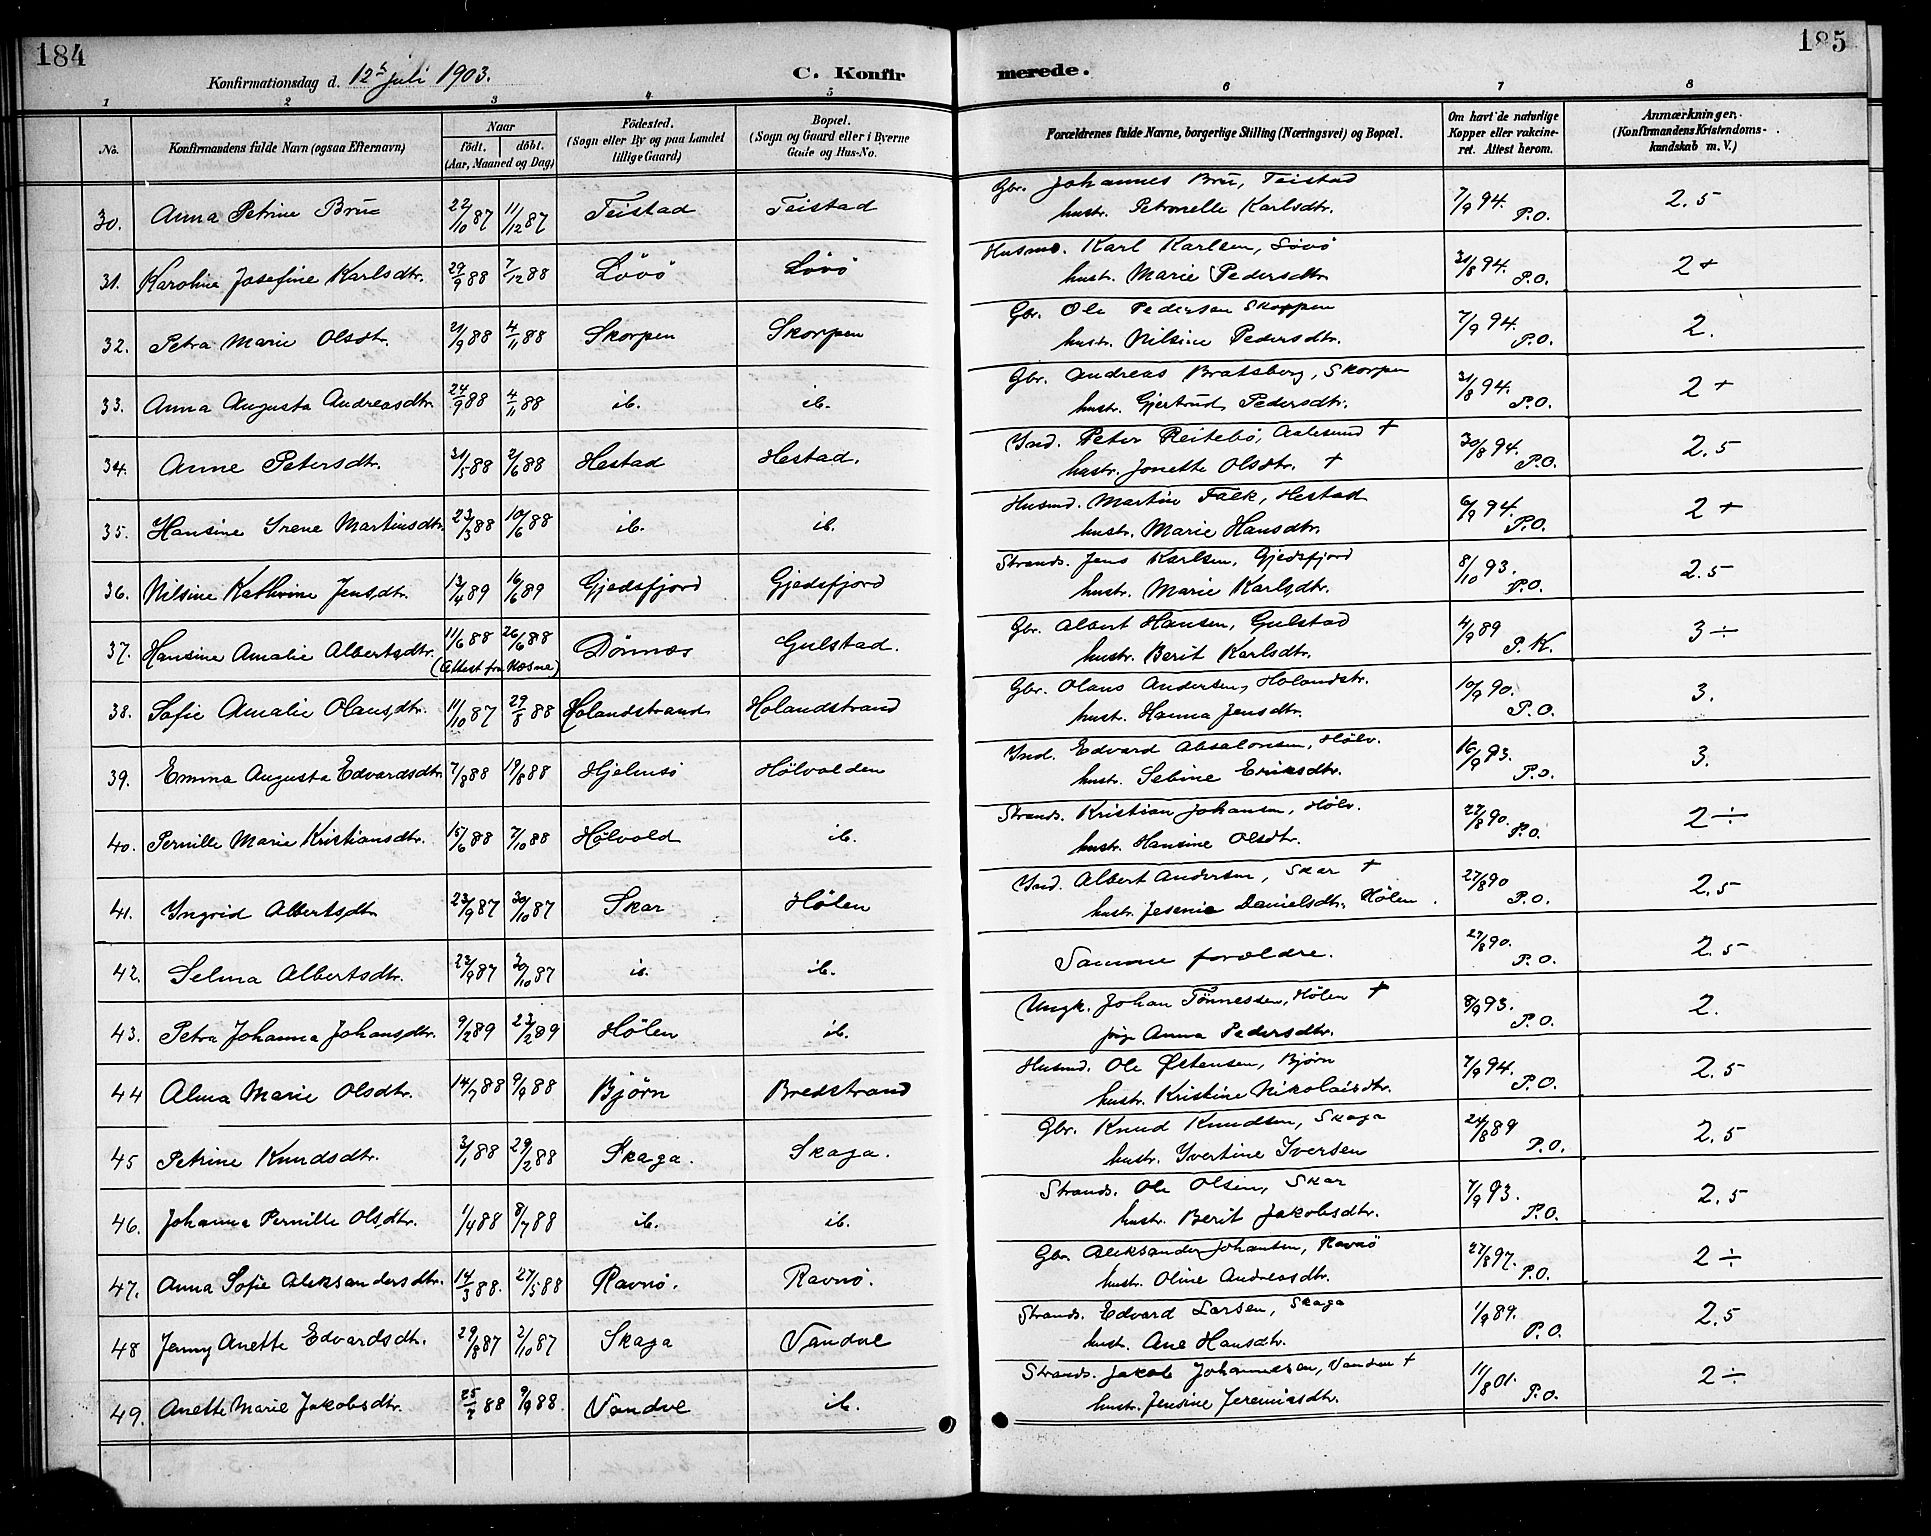 184
185
Konfirmationsdag d. 12te juli 1903.
C. Konfirmerede.
1 2 3 4 5 6 7 8
No. Konfirmandens fulde Navn (ogsaa Efternavn) Naar födt. döbt. (Aar, Maaned og Dag) Födested. (Sogn eller By og paa Landet tillige Gaard) Bopæl. (Sogn og Gaard eller i Byerne Gade og Hus-No. Forældrenes fulde Navne, borgerlige Stilling (Næringsvei) og Bopæl. Om havt de naturlige Kopper eller vakcineret. Attest herom. Anmærkninger. (Konfirmandens Kristendomskundskab m. V.)
30. Anna Petrine Brue 22/10 87 11/12 87 Teistad Teistad Gbr. Johannes Bru, Teistad 7/9 94. P.O. 2.5
hustr. Petronelle Karlsdtr.
31. Karoline Josefine Karlsdtr. 29/9 88 7/12 88 Lövö Lövö Husmd. Karl Karlsen, Lövö 31/8 94. P.O. 2+
hustr. Marie Pedersdtr.
32. Petra Marie Olsdtr. 21/9 88 4/11 88 Skorpen Skorpen Gbr. Ole Pedersen Skorpen 7/9 94. P.O. 2.
hustr. Nilsine Pedersdtr.
33. Anna Augusta Andreasdtr. 24/9 88 4/11 88 ib. ib. Gbr. Andreas Bratsberg, Skorpen 31/8 94. P.O. 2+
hustr. Gjertrud Pedersdtr.
34. Anne Petersdtr. 31/5 88 2/6 88 Hestad Hestad. Ind. Peter Reitebö, Aalesund + 30/8 94. P.O. 2.5
hustr. Jonette Olsdtr. +
35. Hansine Irene Martinsdtr. 23/3 88 10/6 88 ib. ib. Husmd. Martin Falk, Hestad 6/9 94. P.O. 2+
hustr. Marie Hansdtr.
36. Nilsine Kathrine Jensdtr. 13/4 89 16/6 89 Gjedsfjord Gjedsfjord Strands. Jens Karlsen, Gjedsfjord 8/10 93. P.O. 2.5
hustr. Marie Karlsdtr.
37. Hansine Amalie Albertsdtr. 11/6 88 26/6 88 Dönnæs Gulstad. Gbr. Albert Hansen, Gulstad 4/9 89 P.K. 3÷
(Attest fra Næsna) hustr. Berit Karlsdtr.
38. Sofie Amalie Olausdtr. 11/10 87 29/8 88 Holandstrand Holandstrand Gbr. Olaus Andersen, Holandstr. 10/9 90. P.O. 3.
hustr. Hanna Jensdtr.
39. Emma Augusta Edvardsdtr. 7/8 88 19/8 88 Hjelmsö Hölvolden Ind. Edvard Absalonsen, Hölv. 16/9 93. P.O. 3.
hustr. Sebine Eriksdtr.
40. Pernille Marie Kristiansdtr. 15/6 88 7/10 88 Hölvold ib. Strands. Kristian Johansen, Hölv. 27/8 90. P.O. 2÷
hustr. Hansine Olsdtr.
41. Yngrid Albertsdtr. 23/9 87 30/10 87 Skar Hölen Ind. Albert Andersen, Skar + 27/8 90 P.O. 2.5
hustr. Jesenie Danielsdtr. Hölen.
42. Selma Albertsdtr. 23/9 87 30/10 87 ib. ib. Samme forældre. 27/8 90. P.O. 2.5
43. Petra Johanna Johansdtr. 9/2 89 23/2 89 Hölen ib. Ungk. Johan Tönnessen, Hölen + 8/9 93. P.O. 2.
pige Anna Pedersdtr.
44 Alma Marie Olsdtr. 14/7 88 9/9 88 Björn Bredstrand Husmd. Ole Østensen, Björn 7/9 94. P.O. 2.5
hustr. Kristine Nikolaisdtr.
45 Petrine Knudsdtr. 3/1 88 29/2 88 Skaga. Skaga. Gbr. Knud Knudsen, Skaga 24/8 89 P.O. 2.5
hustr. Ivertine Iversen
46. Johanna Pernille Olsdtr. 1/4 88 8/7 88 ib. ib. Strands. Ole Olsen, Skar 7/9 93. P.O. 2.5
hustr. Berit Jakobsdtr.
47. Anna Sofie Aleksandersdtr. 14/3 88. 27/5 88 Ravnö. Ravnö. Gbr. Aleksander Johansen, Ravnö 27/8 97. P.O. 2÷
hustr. Oline Andreasdtr.
48 Jenny Anette Edvardsdtr. 29/8 87 2/10 87 Skaga Vandve Strands. Edvard Larsen, Skaga 1/9 89. P.O. 2.5
hustr. Ane Hansdtr.
49. Anette Marie Jakobsdtr. 25/7 88 9/9 88. Vandve ib. Strands. Jakob Johannesen, Vandve + 11/8 01. P.O. 2÷
hustr. Jensine Jeremiasdtr.